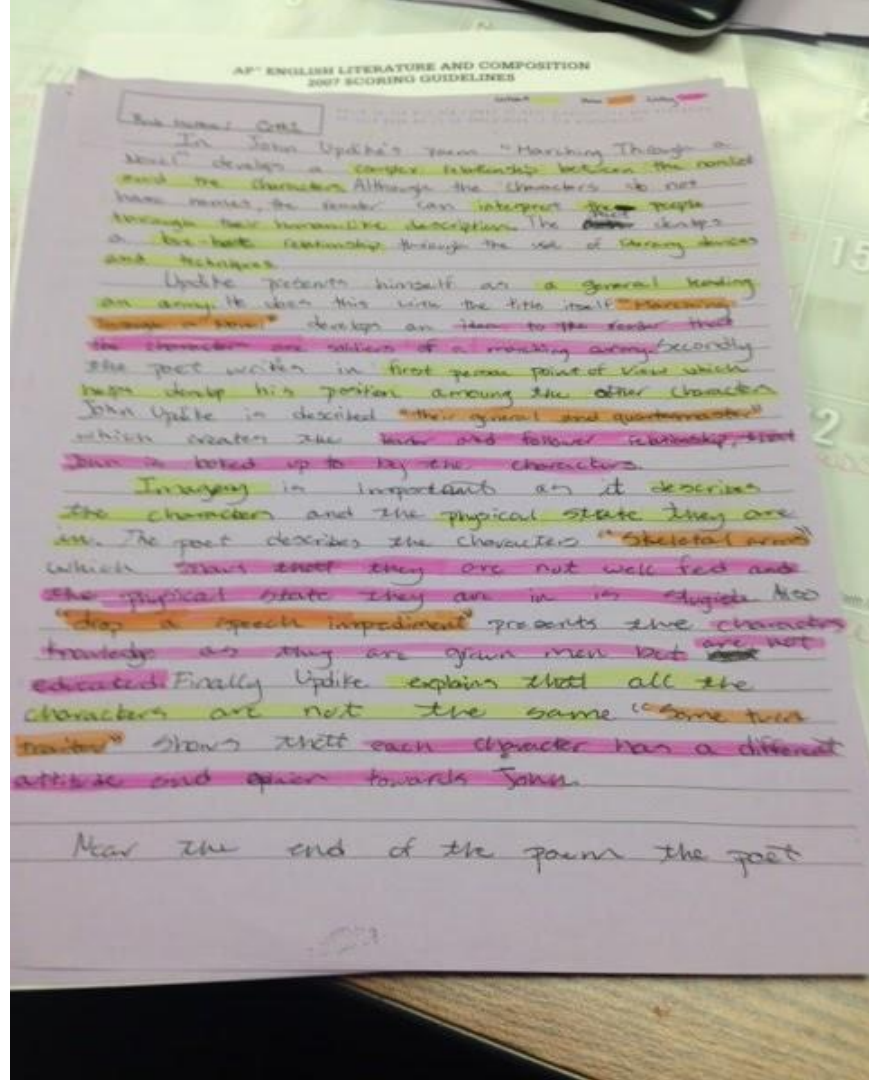 AP® ENGLISH LITERATURE AND COMPOSITION
2007 SCORING GUIDELINES
In John Updike's poem "Marching Through a
Novel" develops a complex relationship between the
and the characters. Although the characters do not
have names, the reader can interpret the people
through their human-like description. The develops
a love-hate relationship through the use of literary devices
and techniques.
Updike presents himself as a general leading
an army. He does this with the title itself "Marching
through a Novel" develops an idea to the reader that
the characters are soldiers of a marching army. Secondly
the poet writes in first person point of view which
helps develop his position amoung the other characters
John Updike is described "their general and quartermaster"
which creates the leader and follower relationship, that
John is looked up to by the characters.
Imagery is important as it describes
the characters and the physical state they are
in. The poet describes the characters "Skeletal arms"
which shows thatt they are not well fed and
the physical state they are in is Also
"drop a speech impediment" presents the characters
knowledge as they are grown men but are not
educated. Finally Updike explains thatt all the
characters are not the same "Some turn
traitor" shows thatt each character has a different
attitude and opinion towards John.
Near the end of the poem the poet
15
12